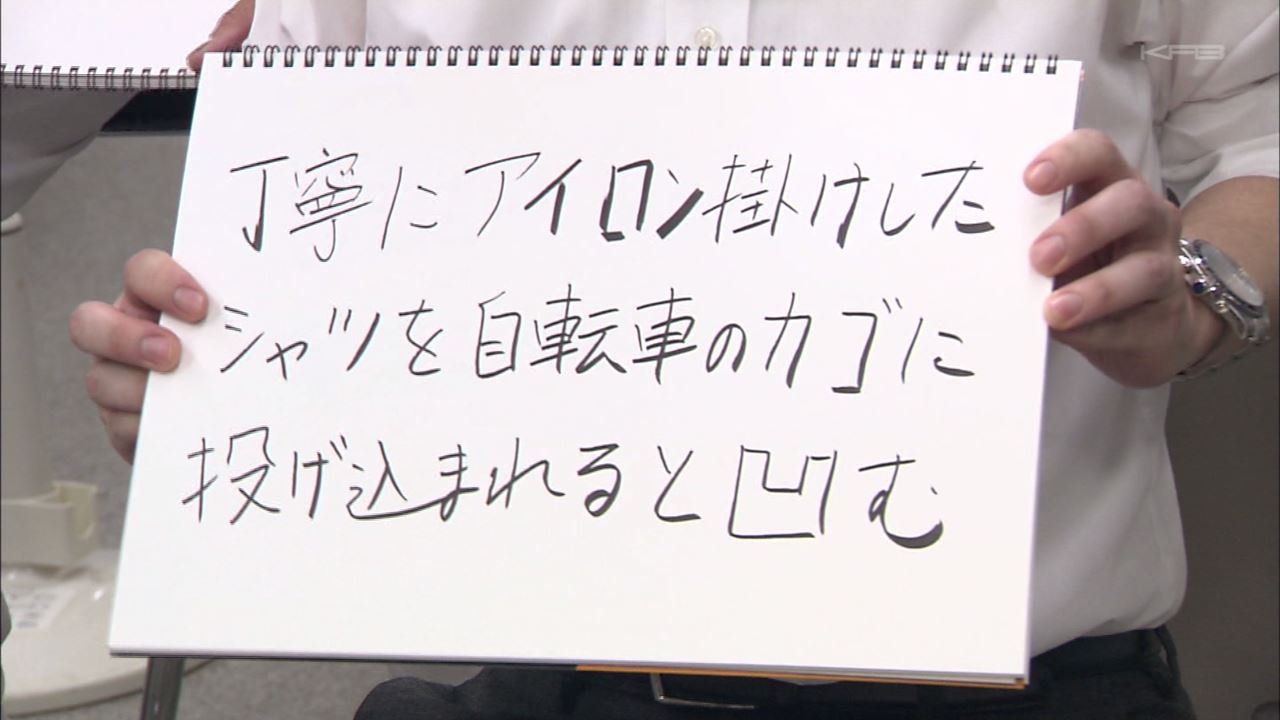 KFB
丁寧にアイロン掛けした
シャツを自転車のカゴに
投げ込まれると凹む